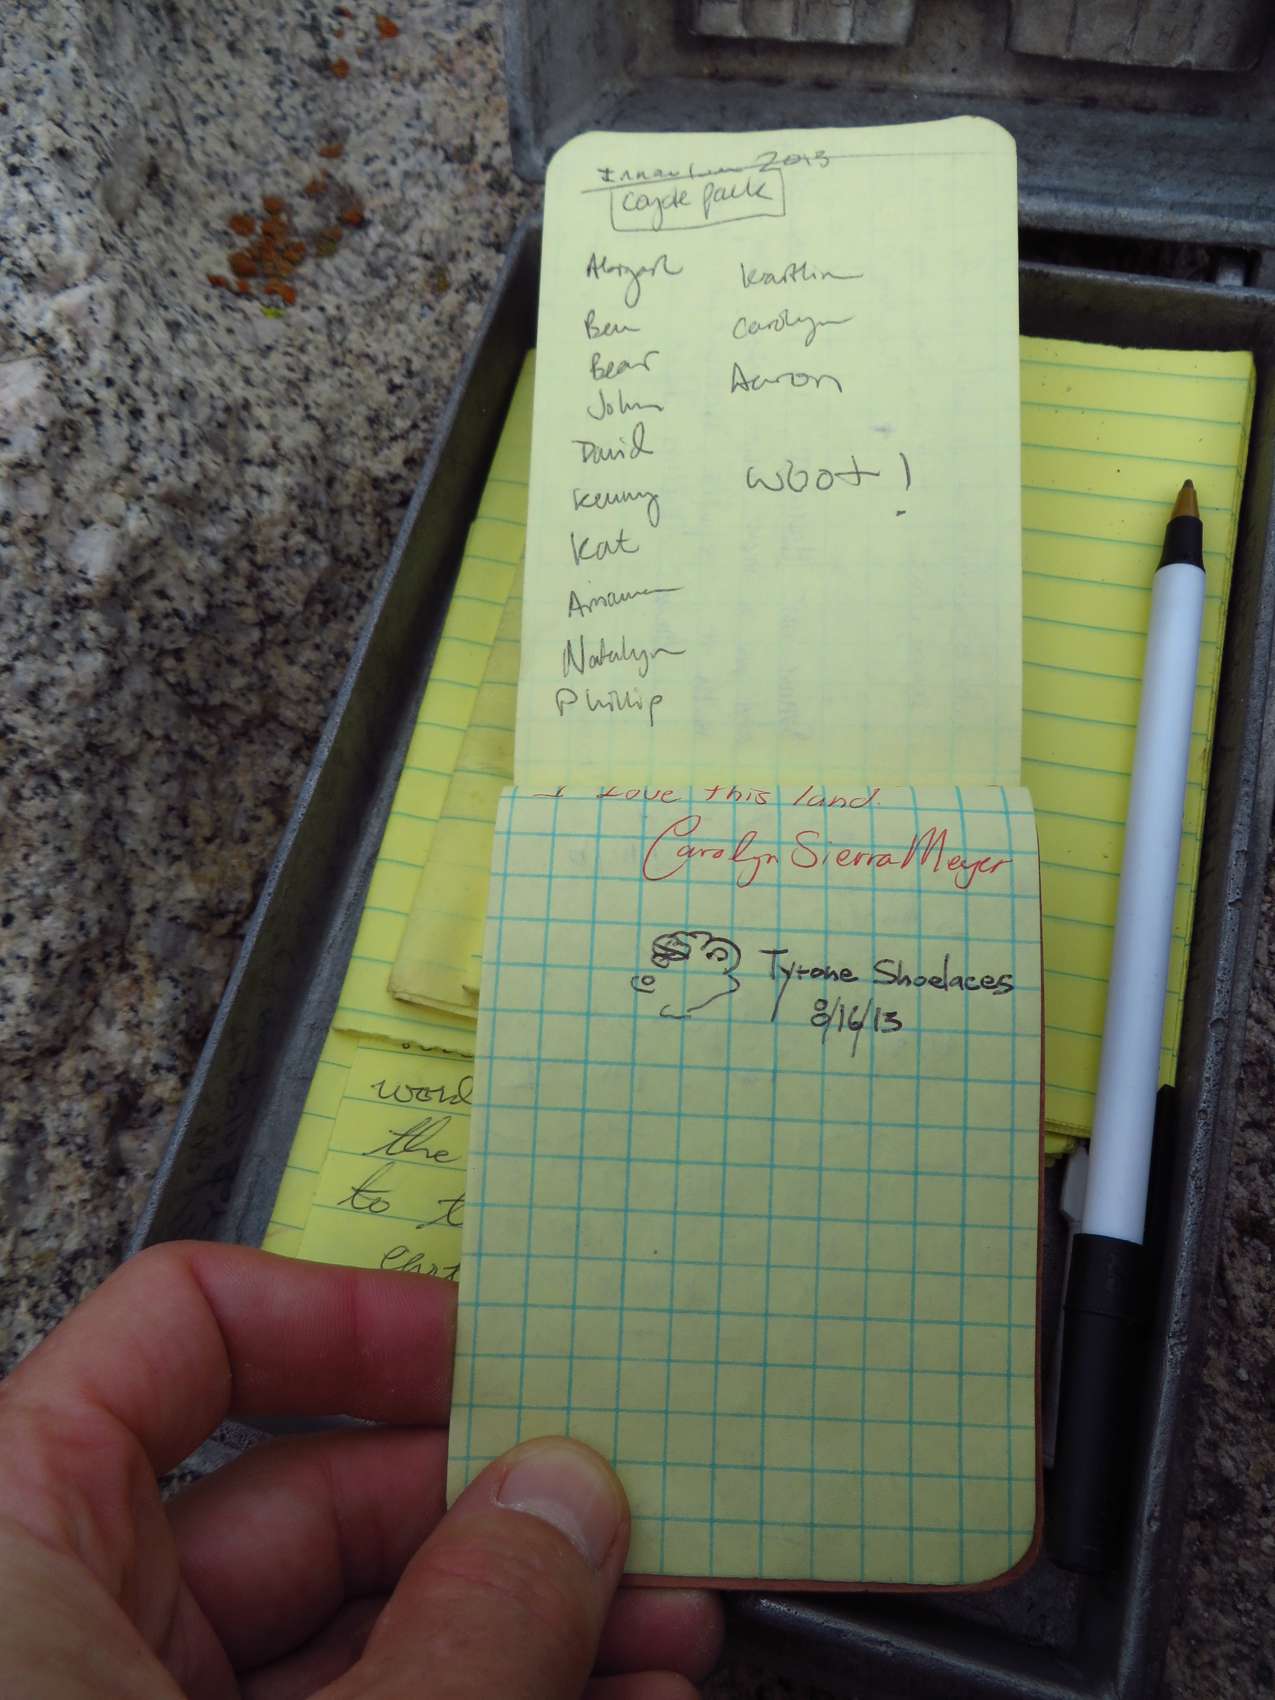 2013
Coyote pack
Ben
Bear
John
David
Kenny
Kat
Natalyn
Phillip
Kaitlin
Carolyn
Aaron
woot!
I love this land.
Carolyn Sierra Meyer
Tyrone Shoelaces
8/16/13
word
the
to t